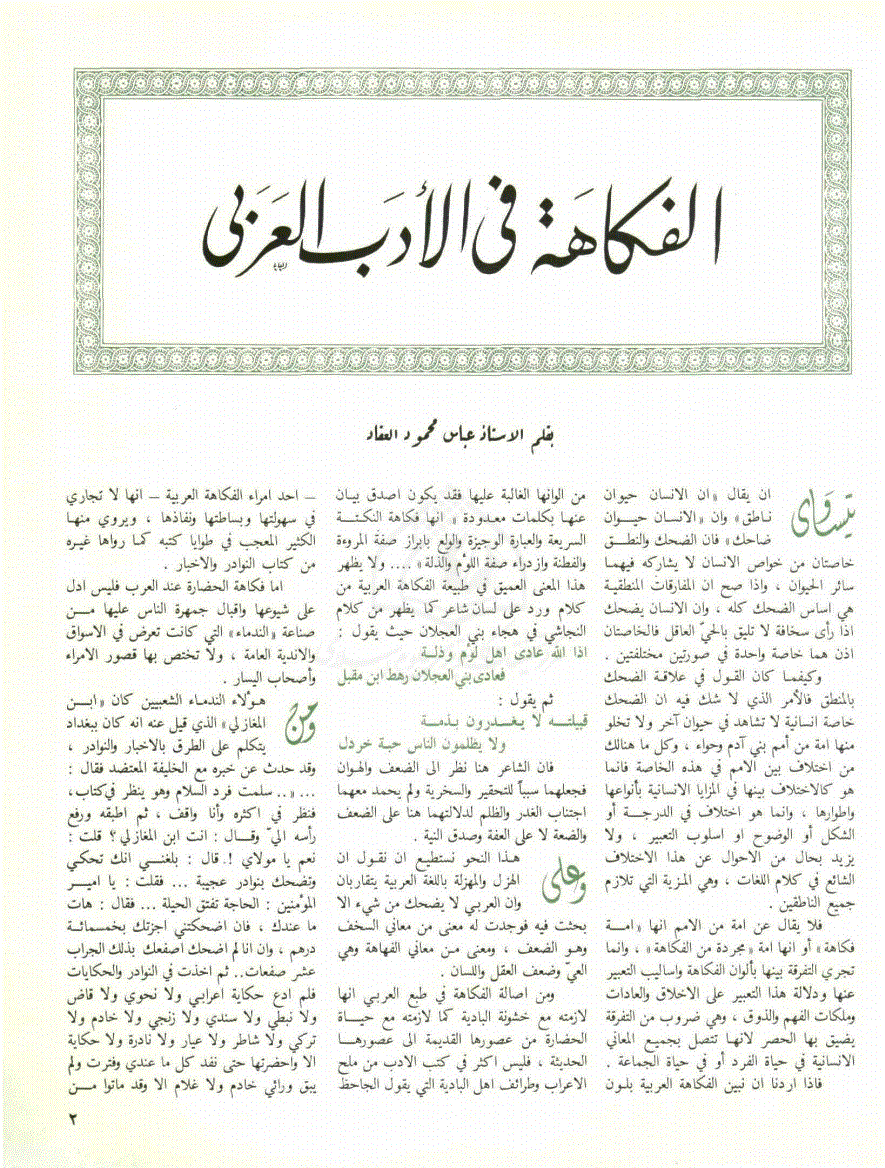 الفكاهة في الأدب العربي
بقلم الاستاذ عباس محمود العقاد
يتساوى ان يقال «ان الانسان حيوان
ناطق» وان «الانسان حيـوان
ضاحك» فان الضحك والنطـق
خاصتان من خواص الانسان لا يشاركه فيهمـا
سائر الحيوان ، واذا صح ان المفارقات المنطقيـة
هي اساس الضحك كله ، وان الانسان يضحك
اذا رأى سخافة لا تليق بالحيّ العاقل فالخاصتان
اذن هما خاصة واحدة في صورتين مختلفتين .
وكيفمـا كان القول في علاقـة الضحك
بالمنطق فالأمر الذي لا شك فيه ان الضحك
خاصة انسانية لا تشاهد في حيوان آخر ولا تخلو
منها امة من أمم بني آدم وحواء ، وكل ما هنالك
من اختلاف بين الامم في هذه الخاصة فانما
هو كالاختلاف بينها في المزايا الانسانية بأنواعها
واطوارها ، وانما هو اختلاف في الدرجـة أو
الشكل أو الوضوح او اسلوب التعبير ، ولا
يزيد بحال من الاحوال عن هذا الاختلاف
الشائع في كلام اللغات ، وهي المزية التي تلازم
جميع الناطقين .
فلا يقال عن امة من الامم انها «امـة
فكاهة» أو انها امة «مجردة من الفكاهة» ، وانما
تجري التفرقة بينها بألوان الفكاهة واساليب التعبير
عنها ودلالة هذا التعبير على الاخلاق والعادات
وملكات الفهم والذوق ، وهي ضروب من التفرقة
يضيق بها الحصر لانهـا تتصل بجميـع المعاني
الانسانية في حياة الفرد أو في حياة الجماعة .
فاذا اردنا ان نبين الفكاهة العربية بلـون
من الوانها الغالبة عليها فقد يكون اصدق بيـان
عنهـا بكلمات معـدودة « انهـا فكاهة النكتـة
السريعة والعبارة الوجيزة والولع بابراز صفة المروءة
والفطنة وازدراء صفة اللؤم والذلة» .... ولا يظهر
هذا المعنى العميق في طبيعة الفكاهة العربية من
كلام ورد على لسان شاعر كما يظهر من كلام
النجاشي في هجاء بني العجلان حيث يقول :
اذا الله عادى اهل لؤم وذلـة
فعادى بني العجلان رهط ابن مقبل
ثم يقول :
قبيلتـــه لا يغـــدرون بـذمـــة
ولا يظلمون الناس حبـة خردل
فان الشاعر هنا نظر الى الضعف والهـوان
فجعلهما سببـاً للتحقير والسخرية ولم يحمد معهما
اجتناب الغدر والظلم لدلالتهما هنا على الضعف
والضعة لا على العفة وصدق النية .
وعلى هـذا النحو نستطيـع ان نقـول ان
الهزل والمهزلة باللغة العربية يتقاربان
وان العربـي لا يضحك من شيء الا
بحثت فيه فوجدت له معنى من معاني السخف
وهـو الضعف ، ومعنى مـن معاني الفهاهة وهي
العيّ وضعف العقل واللسان .
ومن اصالة الفكاهة في طبع العربـي انها
لازمته مع خشونة البادية كما لازمته مع حيـاة
الحضارة من عصورها القديمة الى عصورهـا
الحديثة ، فليس اكثر في كتب الادب من ملح
الاعراب وطرائف اهل البادية التي يقول الجاحظ
ــ احد امراء الفكاهة العربية ــ انها لا تجاري
في سهولتها وبساطتها ونفاذها ، ويروي منهـا
الكثير المعجب في طوايا كتبه كمـا رواها غيـره
من كتاب النوادر والاخبار .
اما فكاهة الحضارة عند العرب فليس ادل
على شيوعها واقبال جمهرة الناس عليها مـــن
صناعة «الندماء» التي كانت تعرض في الاسواق
والاندية العامة ، ولا تختص بها قصور الامراء
وأصحاب اليسار .
ومن هـؤلاء الندمـاء الشعبيين كان «ابـن
المغازلي» الذي قيل عنه انه كان ببغداد
يتكلم على الطرق بالاخبار والنوادر ،
وقد حدث عن خبره مع الخليفة المعتضد فقال :
... «.. سلمت فرد السلام وهو ينظر في كتاب ،
فنظر في اكثره وأنا واقف ، ثم اطبقه ورفع
رأسه اليّ وقـال : انت ابن المغازلي ؟ قلت :
نعم يا مولاي !. قال : بلغنـي انك تحكـي
وتضحك بنوادر عجيبة ... فقلت : يا اميـر
المؤمنين : الحاجة تفتق الحيلة ... فقال : هات
ما عندك ، فان اضحكتني اجزتك بخمسمائـة
درهم ، وان انا لم اضحك اصفعك بذلك الجراب
عشر صفعات.. ثم اخذت في النوادر والحكايات
فلم ادع حكاية اعرابي ولا نحوي ولا قاض
ولا نبطي ولا سندي ولا زنجي ولا خادم ولا
تركي ولا شاطر ولا عيار ولا نادرة ولا حكاية
الا واحضرتها حتى نفد كل ما عندي وفترت ولم
يبق ورائي خادم ولا غلام الا وقد ماتوا مـــن
٢